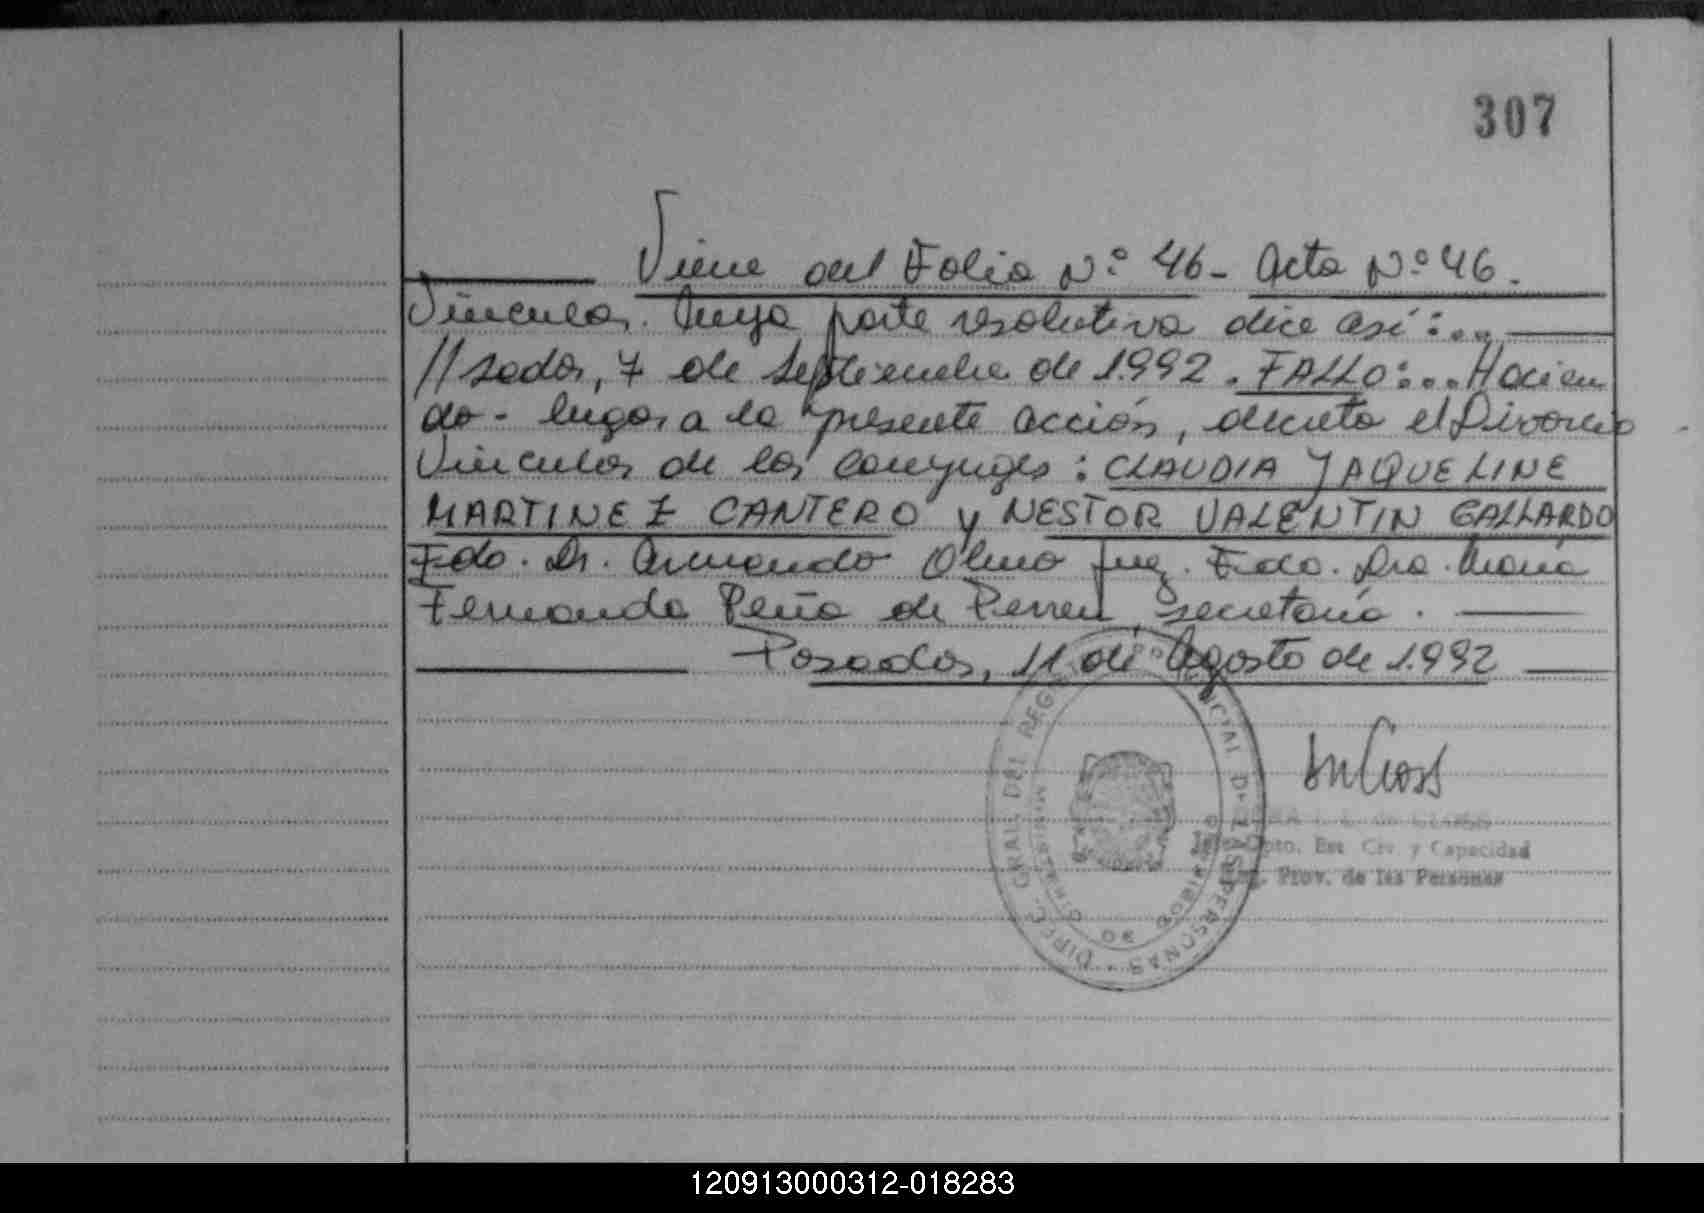 307
Viene del Folio N° 46- Acta N° 46.
Vincular. Cuya parte resolutiva dice así:...
//sadas, 7 de Septiembre de 1.992. FALLO:... Hacien
do- lugar a la presente acción, decreto el Divorcio
Vincular de los conyuges: CLAUDIA YAQUELINE
MARTINEZ CANTERO y NESTOR VALENTIN GALLARDO
Fdo. Dr. Armando Olmo Juez. Fdo. Dra. María
Fernanda Peña de Perren secretaria.
Posadas, 11 de Agosto de 1.992
DIREC. GRAL. DEL REGISTRO PROVINCIAL DE LAS PERSONAS
MINISTERIO DE GOBIERNO
Dpto. Est. Civ. y Capacidad
Prov. de las Personas
120913000312-018283